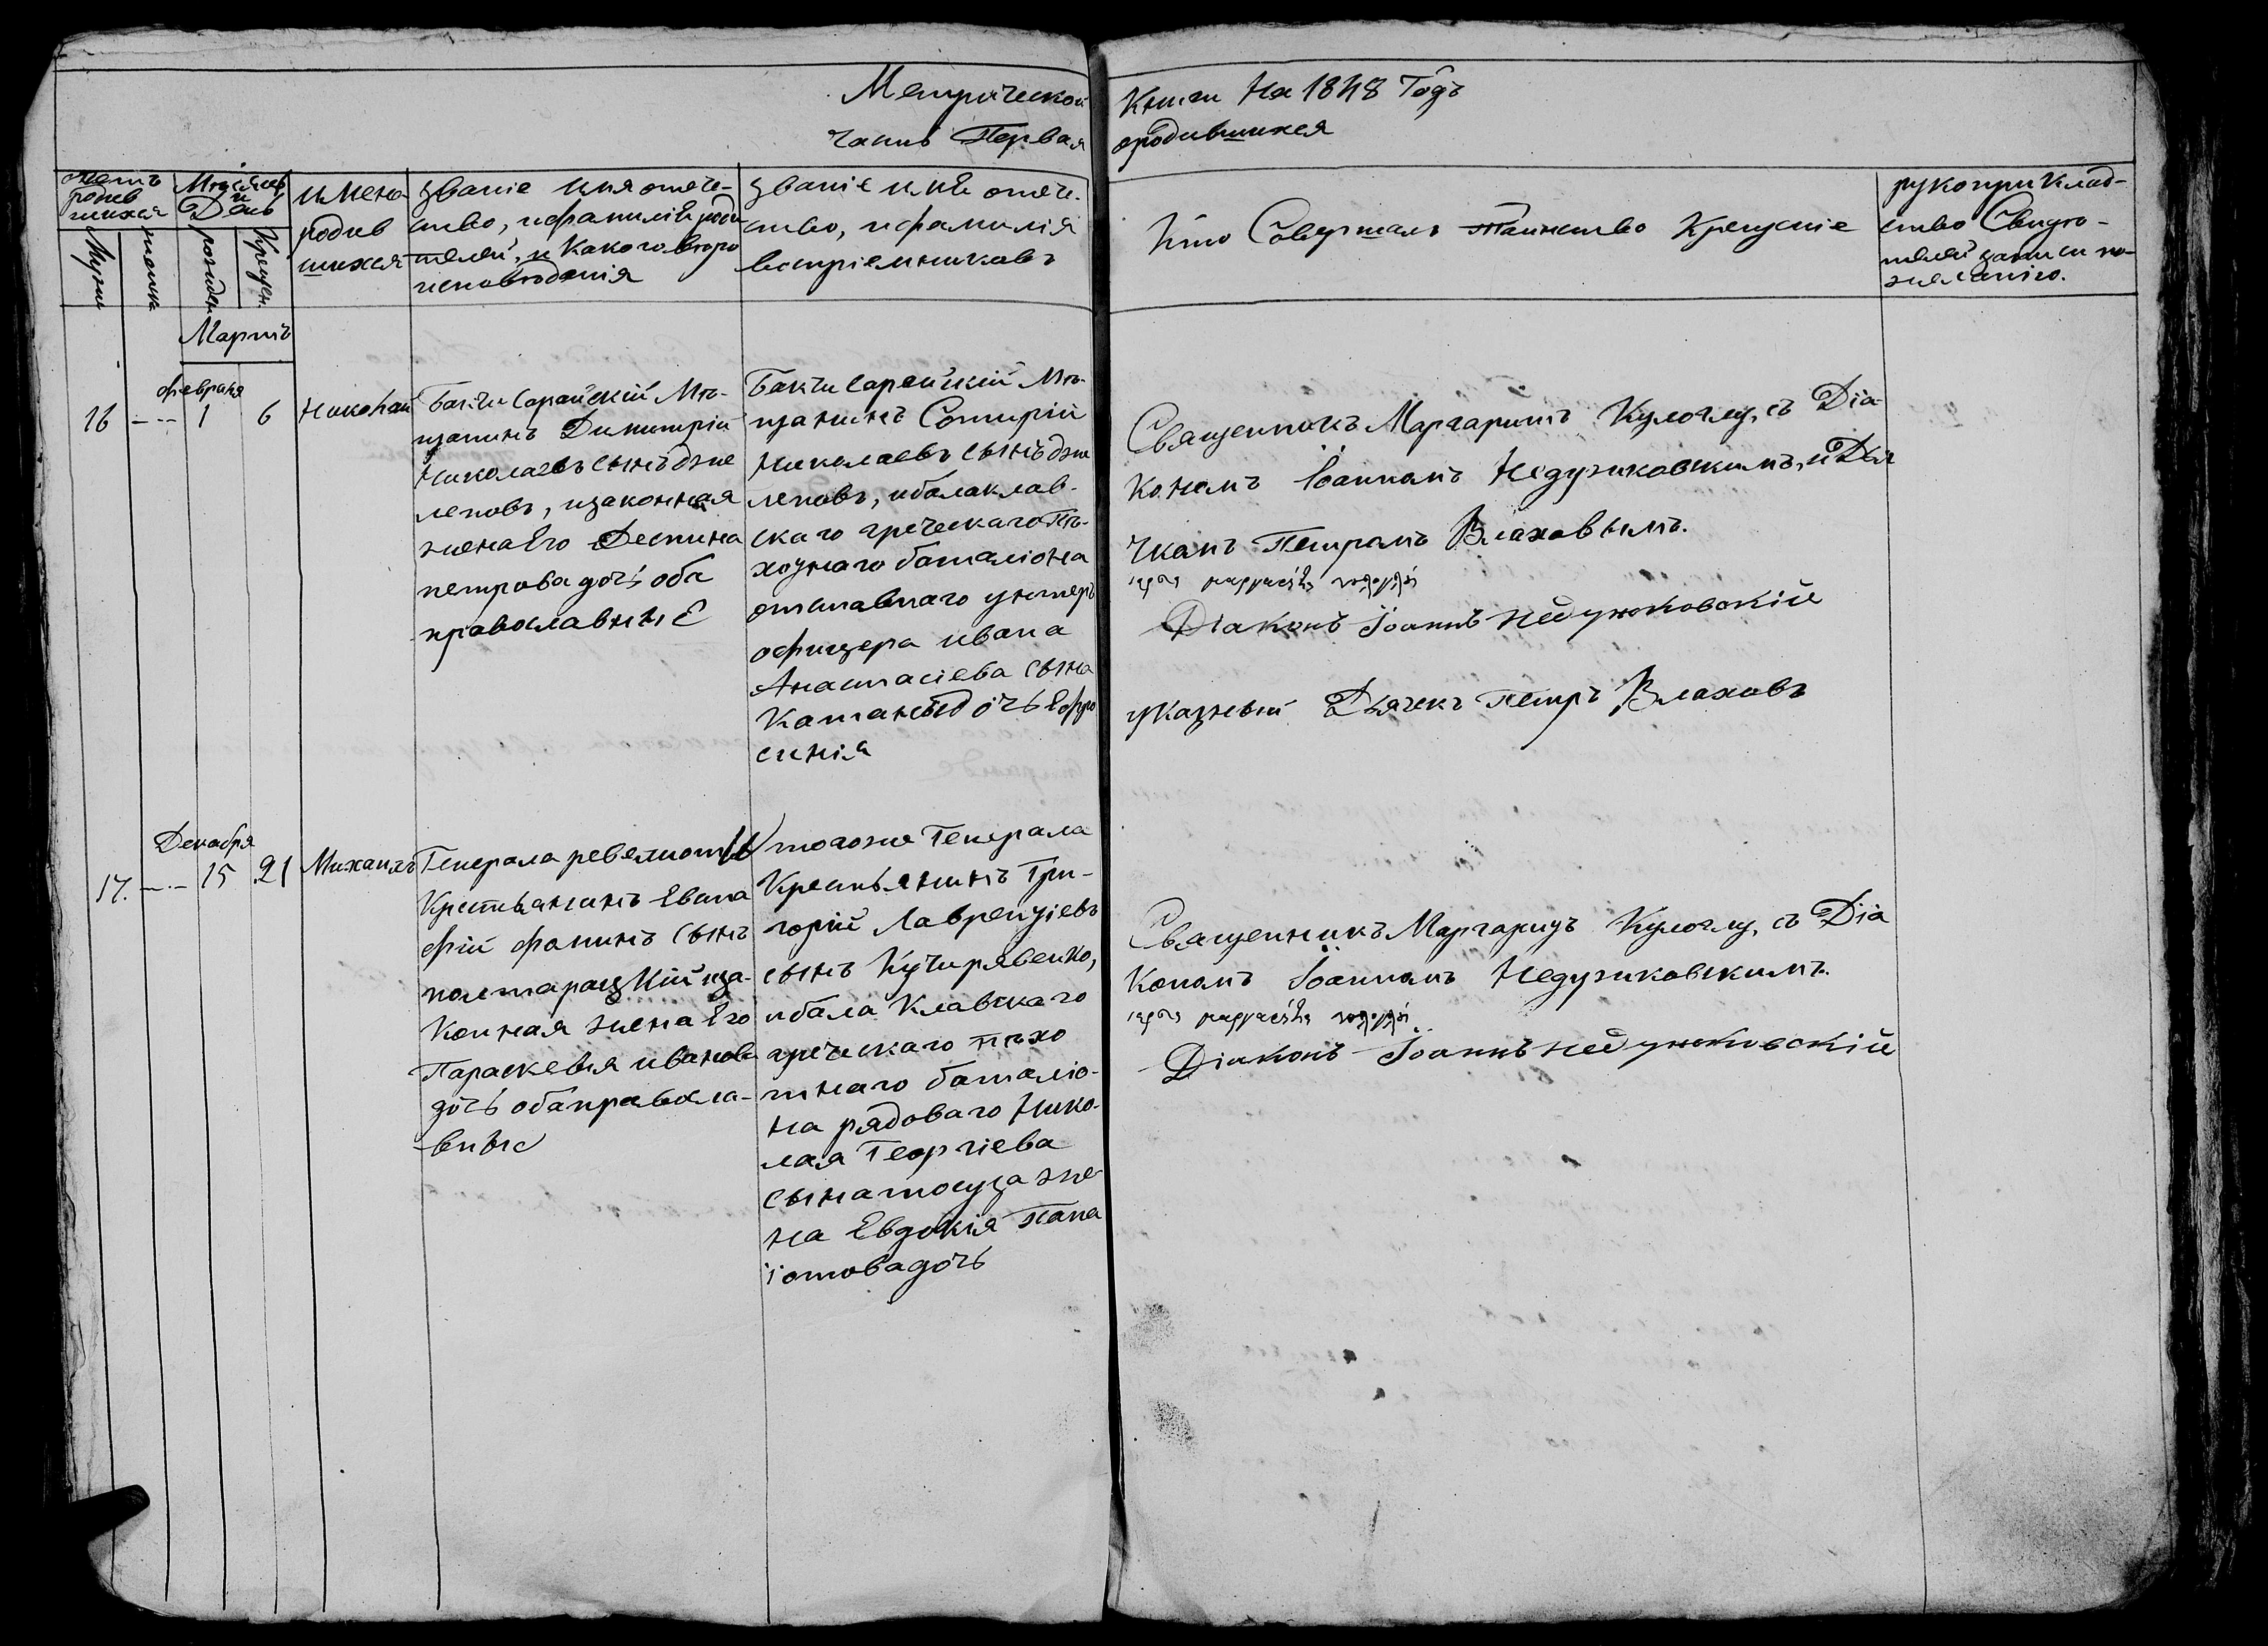 Метрической Книги на 1848 Годъ
часть Перваяородившихся
Щетъ родив шихся
Мѣсяцъ и День
имена родив шихся
званіе имя отече-
ство, ифамиліѣ роди
телей, и Какого вѣро
исповѣданія
званіе имѣ отече-
ство, ифамилія
воспріемниковъ
Кто Совершалъ Таинство Крещеніе
рукоприклад-
ство Свидѣ-
телей записи по-
желанію.
Муж
женска
рожден
Крещен.
Мартъ
февраля
16 --- 1 6
Николай
Бахчисарайскій Мѣ-
щанинъ Димитрій
Николаевъ сынъ дже
леповъ, изаконная
жена Его Деспина
петрова дочь оба
православныЕ
Бахчисарейскій Мѣ-
щанинъ Сотирій
Николаевъ сынъ дже
леповъ, ибалаклав-
скаго греческаго Пѣ-
хотнаго баталіона
отставнаго унтеръ
офицера ивана
Анастасіева сына
дочь Ефро
синія
Священникъ Маргаритъ Кулоглу, съ Діа-
кономъ Іоанномъ Недужковскимъ, и Дья
чкомъ Петромъ Влаховымъ.
Діаконъ Іоаннъ недужковскій
указный Дьячекъ Петръ Влаховъ
Декабря
17. --- 15 21
Михаилъ
Генерала
Крестьянинъ Евпа
фій фоминъ сынъ
полтарацкій иза-
Конная жена Его
Параскевия иванова
дочь оба правосла-
вные
тогоже Генерала
Крестьянинъ Гри-
горій Лаврентіевъ
сынъ Кучирявенко,
ибала Клавскаго
греческаго пѣхо
тнаго баталіо-
на рядоваго Нико-
лая Георгіева
сына жe-
на Евдокія Пана
іотова дочь
Священникъ Маргаритъ Кулоглу, съ Діа
Кономъ Іоанномъ Недужковскимъ.
Діаконъ Іоаннъ недужковскій